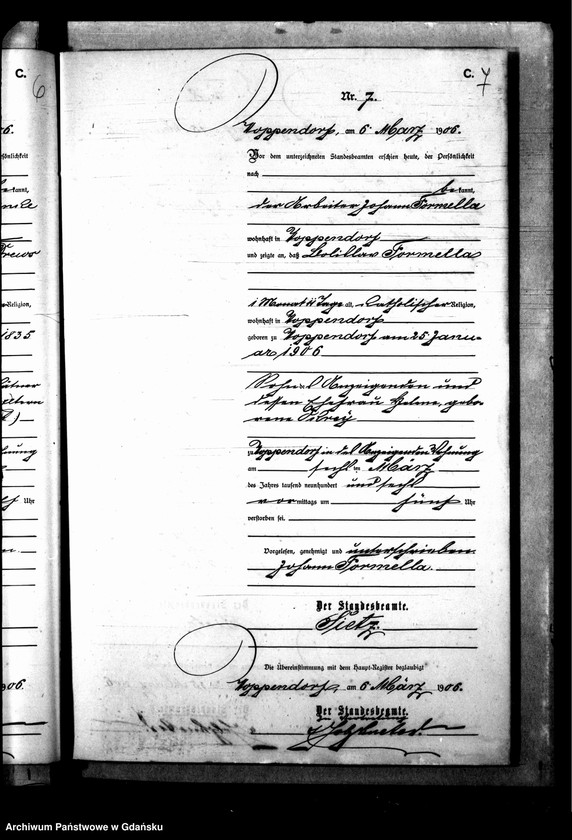 C.
6
C.
7
Nr. 7.
Zoppendorf, am 6 März 1906.
Vor dem unterzeichneten Standesbeamten erschien heute, der Persönlichkeit
nach
be kannt,
der Arbeiter Johann Formella
wohnhaft in Zoppendorf
und zeigte an, daß Bolislav Formella
1 Monat 11 Tage alt, katholischer Religion,
wohnhaft in Zoppendorf
geboren zu Zoppendorf am 25 Janu-
ar 1906
Sohn des Anzeigenden und
dessen Ehefrau geborene
zu Zoppendorf in des Anzeigenden Wohnung
am sechs ten März
des Jahres tausend neunhundert und sechs
vor mittags um fünf Uhr
verstorben sei.
Vorgelesen, genehmigt und unterschrieben
Johann Formella.
Der Standesbeamte.
Tietz.
Die Übereinstimmung mit dem Haupt-Register beglaubigt
Zoppendorf, am 6 März 1906.
Der Standesbeamte.
In Vertretung
Archiwum Państwowe w Gdańsku